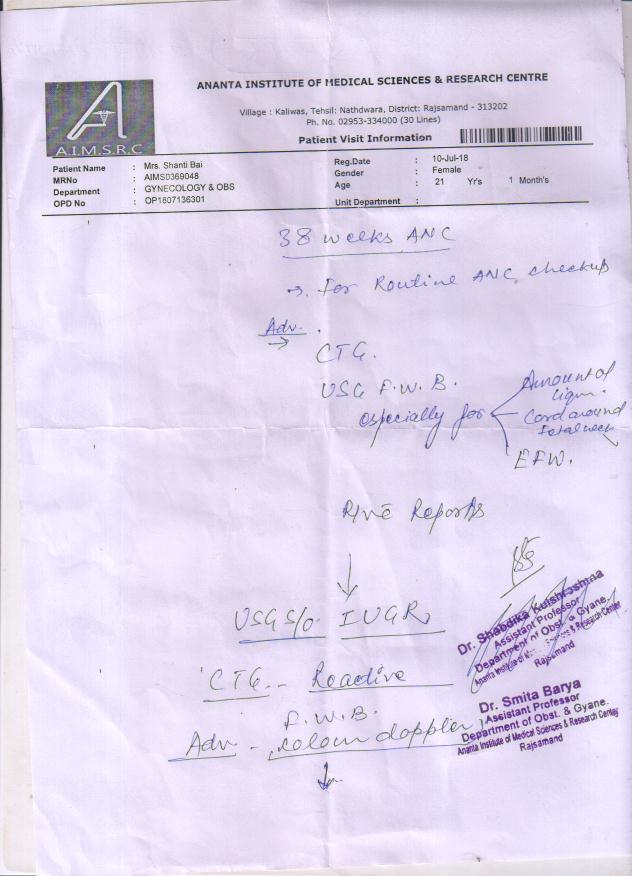 ANANTA INSTITUTE OF MEDICAL SCIENCES & RESEARCH CENTRE
Village : Kaliwas, Tehsil: Nathdwara, District: Rajsamand - 313202
Ph. No. 02953-334000 (30 Lines)
A.I.M.S.R.C
Patient Visit Information
Patient Name : Mrs. Shanti Bai
MRNo : AIMS0369048
Department : GYNECOLOGY & OBS
OPD No : OP1807136301
Reg.Date : 10-Jul-18
Gender : Female
Age : 21 Yr's 1 Month's
Unit Department :
38 weeks ANC
→ For Routine ANC checkup
Adv.
CTG.
USG F.W.B.
especially for
Amount of
liqu.
Cord around
Fetal neck
EFW.
Reports
USG S/o IUGR
CTG - Reactive
F.W.B.
Adv - colour doppler
Dr. Shabdika Kulshroshina
Assistant Professor
Department of Obst. & Gyane.
Ananta Institute of Medical Sciences & Research Center
Rajsamand
Dr. Smita Barya
Assistant Professor
Department of Obst. & Gyane.
Ananta Institute of Medical Sciences & Research Center
Rajsamand